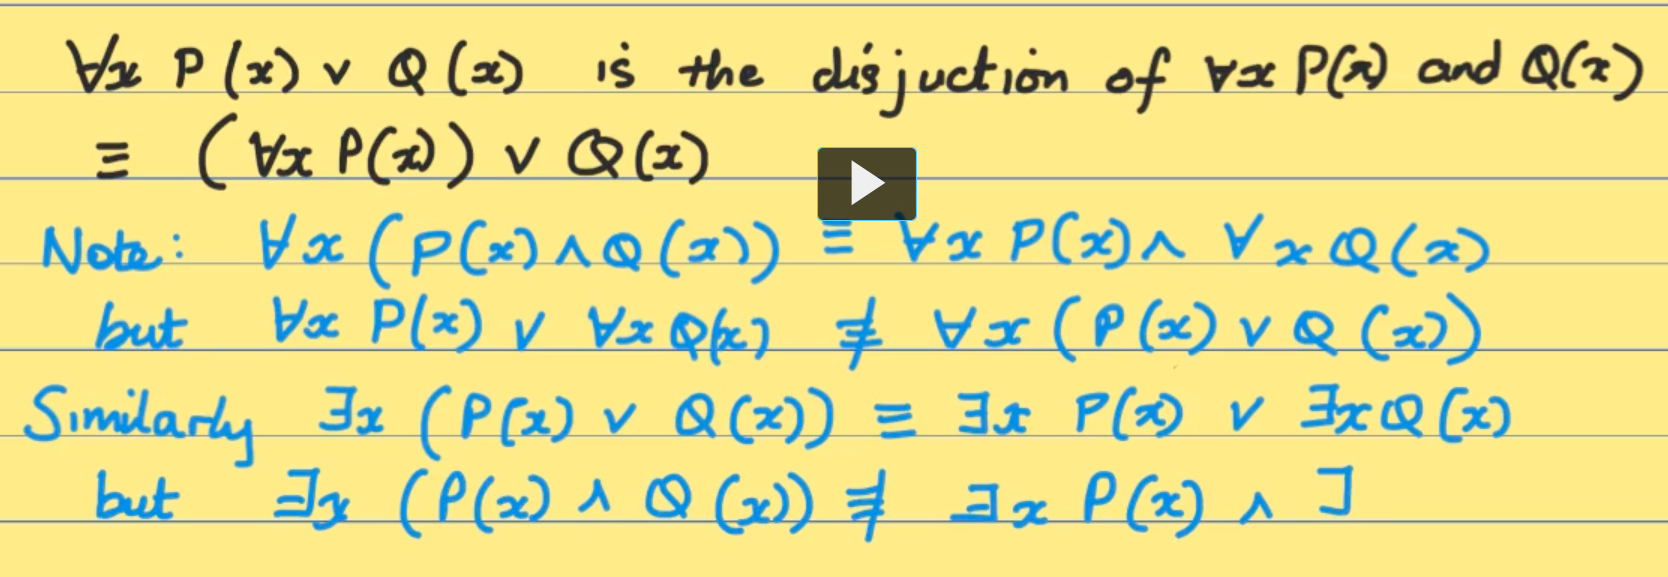 ∀x P(x) ∨ Q(x) is the disjuction of ∀x P(x) and Q(x)
≡ (∀x P(x)) ∨ Q(x)
Note: ∀x (P(x) ∧ Q(x)) ≡ ∀x P(x) ∧ ∀x Q(x)
but ∀x P(x) ∨ ∀x Q(x) ≢ ∀x (P(x) ∨ Q(x))
Similarly ∃x (P(x) ∨ Q(x)) ≡ ∃x P(x) ∨ ∃x Q(x)
but ∃x (P(x) ∧ Q(x)) ≢ ∃x P(x) ∧ ∃